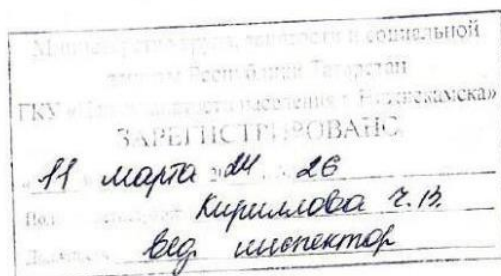 Министерство труда, занятости и социальной
защиты Республики Татарстан
ГКУ «Центр занятости населения г. Нижнекамска»
ЗАРЕГИСТРИРОВАНО
« 11 » марта 2024 г. № 26
Кириллова Ч.В.
вед. инспектор